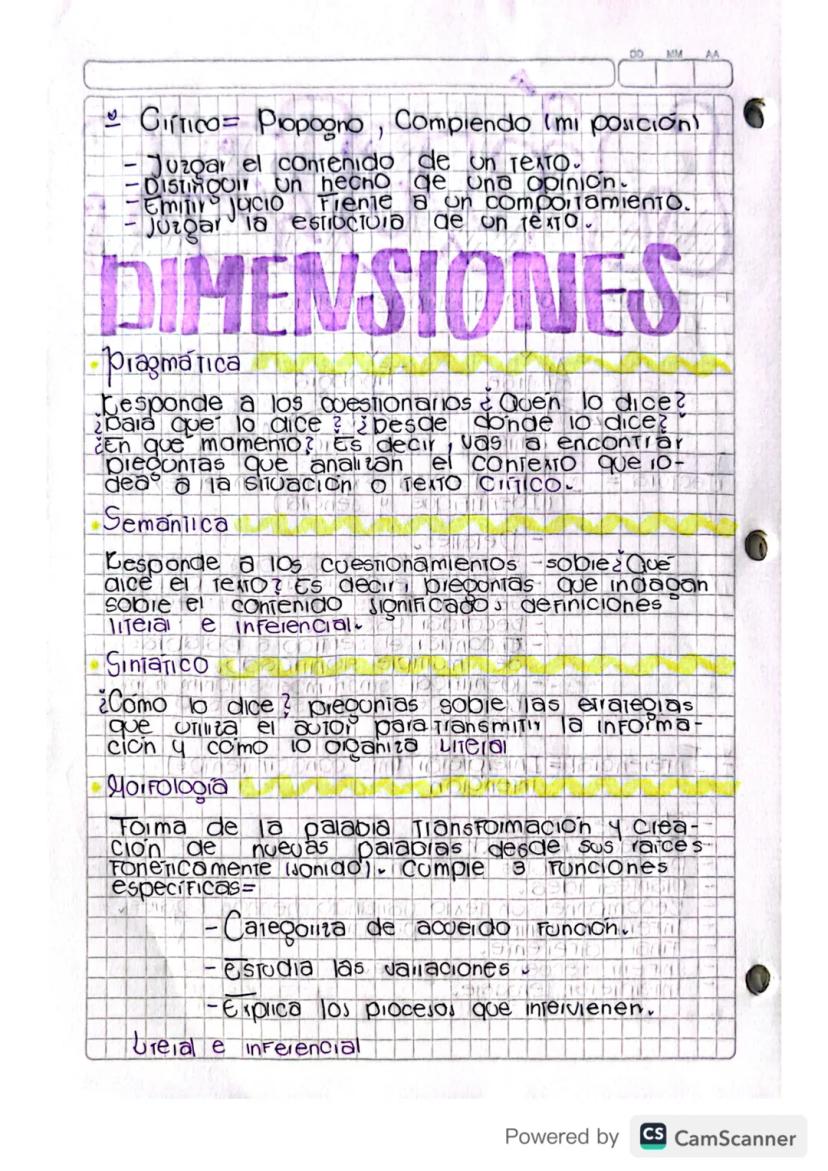 DD MM AA
Crítico= Propogno, Compiendo (mi posición)
- Juzgar el contenido de un texto.
- Distinguir un hecho de una opinión.
- Emitir jucio frente a un comportamiento.
- Juzgar la estructura de un texto.
DIMENSIONES
• Pragmática
Responde a los cuestionarios ¿Quen lo dice?
¿Para qué lo dice? ¿Desde dónde lo dice?
¿En qué momento? Es decir, vas a encontrar
preguntas que analizan el contexto que ro-
dea a la situación o texto crítico.
• Semántica
Responde a los cuestionamientos sobre ¿Qué
dice el texto? Es decir, preguntas que indagan
sobre el contenido significados definiciones
literal e inferencial.
• Sintático
¿Cómo lo dice? preguntas sobre las estrategias
que utiliza el autor para transmitir la informa-
ción y cómo lo organiza Literal
• Morfología
Forma de la palabra Transformación y crea-
ción de nuevas palabras desde sus raíces
fonéticamente (sonido). Cumple 3 funciones
específicas=
- Categoriza de acuerdo función.
- Estudia las variaciones.
- Explica los procesos que intervienen.
Literal e inferencial
Powered by CS CamScanner